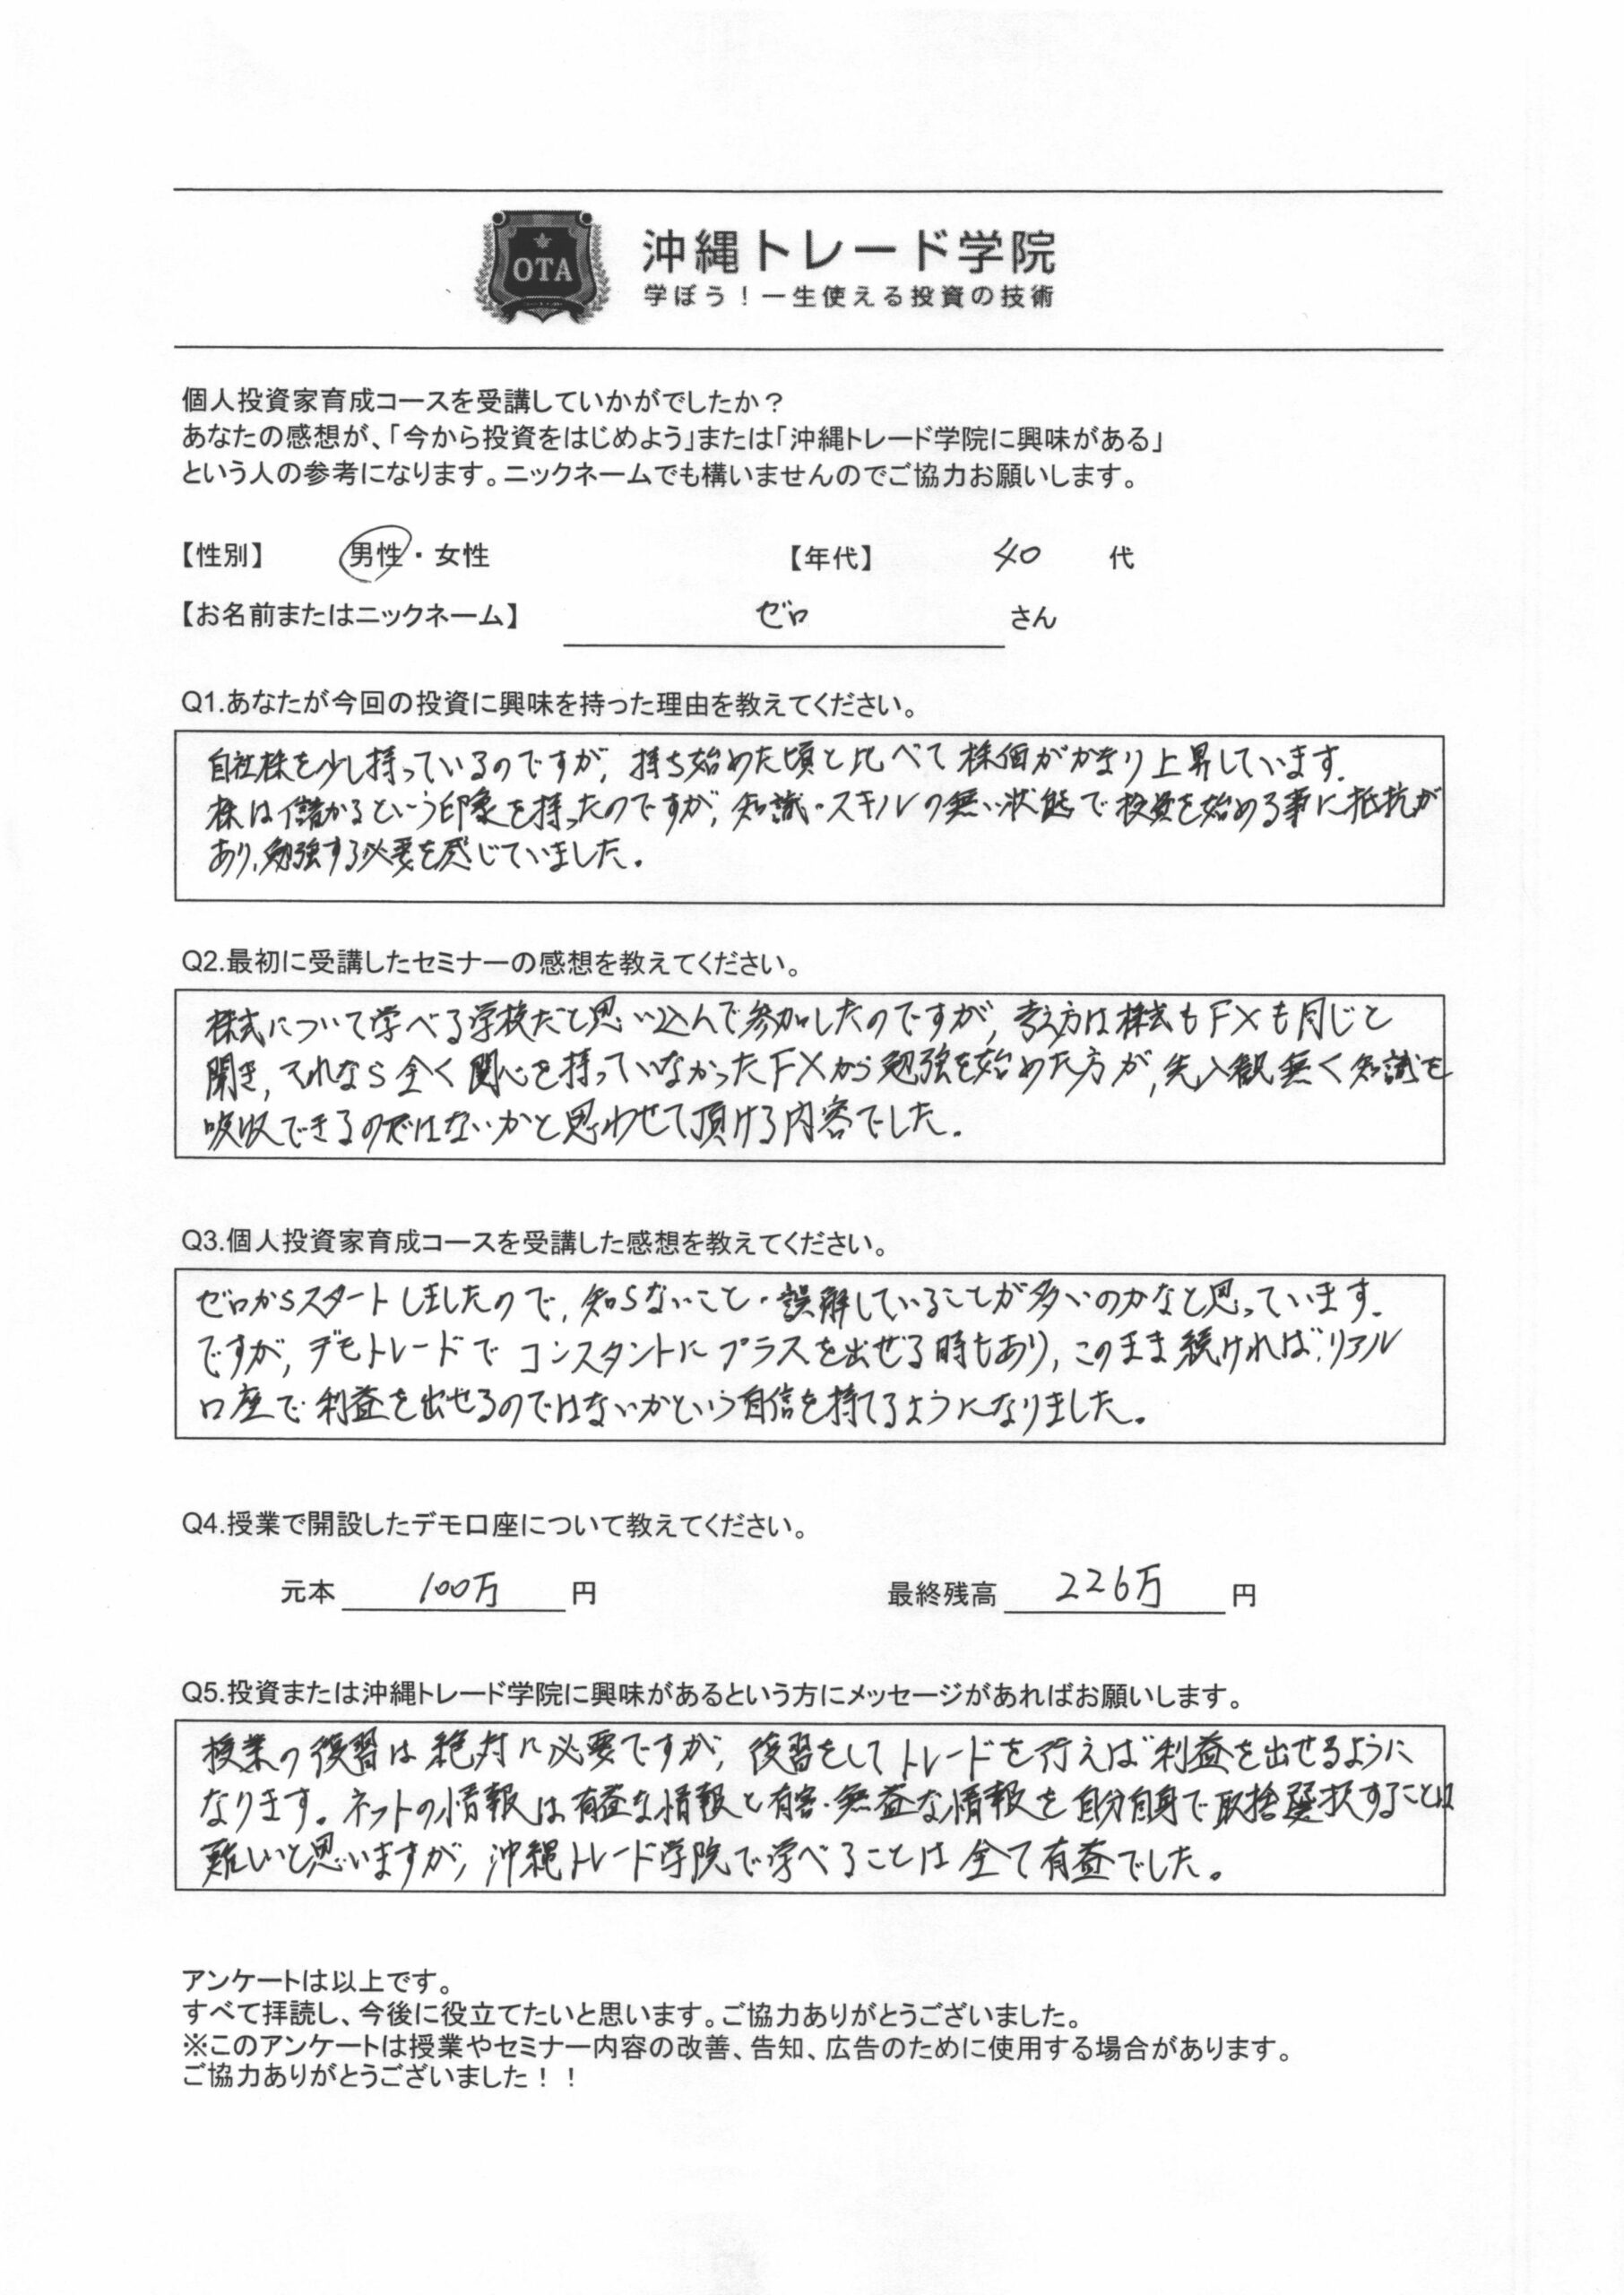 OTA
沖縄トレード学院
学ぼう！一生使える投資の技術
個人投資家育成コースを受講していかがでしたか？
あなたの感想が、「今から投資をはじめよう」または「沖縄トレード学院に興味がある」
という人の参考になります。ニックネームでも構いませんのでご協力お願いします。
【性別】 男性・女性 【年代】 40 代
【お名前またはニックネーム】 ゼロ さん
Q1.あなたが今回の投資に興味を持った理由を教えてください。
自社株を少し持っているのですが、持ち始めた頃と比べて株価がかなり上昇しています。
株は儲かるという印象を持ったのですが、知識・スキルの無い状態で投資を始める事に抵抗が
あり、勉強する必要を感じていました。
Q2.最初に受講したセミナーの感想を教えてください。
株式について学べる学校だと思い込んで参加したのですが、考え方は株式もFXも同じと
聞き、それなら全く関心を持っていなかったFXから勉強を始めた方が、先入観無く知識を
吸収できるのではないかと思わせて頂ける内容でした。
Q3.個人投資家育成コースを受講した感想を教えてください。
ゼロからスタートしましたので、知らないこと・誤解していることが多いのかなと思っています。
ですが、デモトレードでコンスタントにプラスを出せる時もあり、このまま続ければ、リアル
口座で利益を出せるのではないかという自信を持てるようになりました。
Q4.授業で開設したデモ口座について教えてください。
元本 100万 円 最終残高 226万 円
Q5.投資または沖縄トレード学院に興味があるという方にメッセージがあればお願いします。
授業の復習は絶対に必要ですが、復習をしてトレードを行えば利益を出せるように
なります。ネットの情報は有益な情報と有害・無益な情報を自分自身で取捨選択することは
難しいと思いますが、沖縄トレード学院で学べることは全て有益でした。
アンケートは以上です。
すべて拝読し、今後に役立てたいと思います。ご協力ありがとうございました。
※このアンケートは授業やセミナー内容の改善、告知、広告のために使用する場合があります。
ご協力ありがとうございました！！